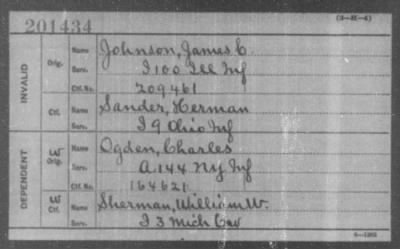 201434
(3-3E-4)
INVALID
Orig.
Name Johnson, James C.
Serv. I 100 Ill Inf
Ctf. No. 209461
Ctf.
Name Sander, Herman
Serv. I 9 Ohio Inf
DEPENDENT
W Orig.
Name Ogden, Charles
Serv. A 144 NY Inf
Ctf. No. 164621
W Ctf.
Name Sherman, William W.
Serv. I 3 Mich Cav